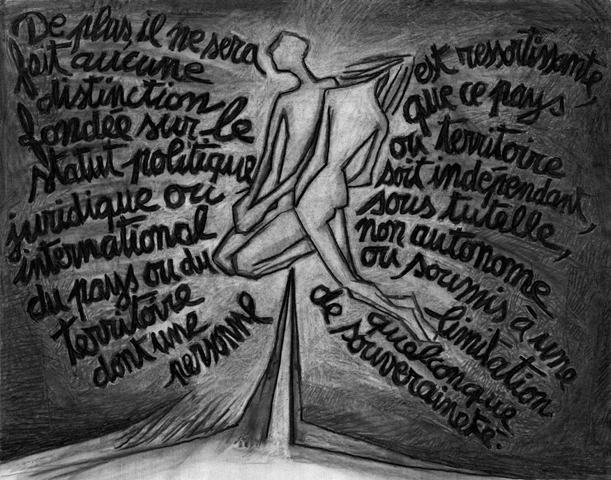 De plus, il ne sera
fait aucune
distinction
fondée sur le
statut politique
juridique ou
international
du pays ou du
territoire
dont une
personne
est ressortissante,
que ce pays
ou territoire
soit indépendant,
sous tutelle,
non autonome
ou soumis à une
limitation
quelconque
de souveraineté.